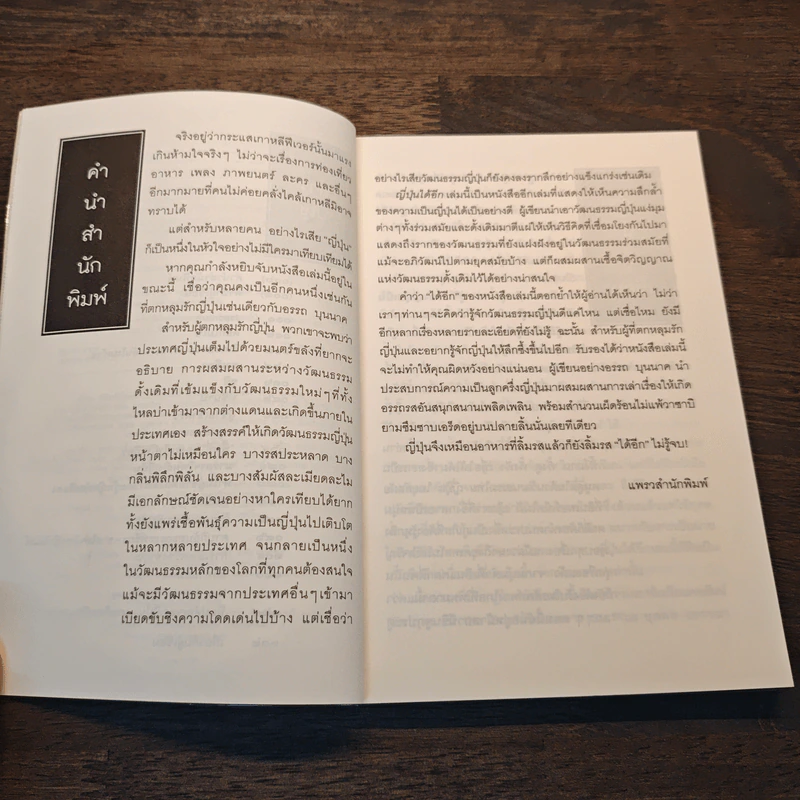 คำ
นำ
สำ
นัก
พิมพ์
จริงอยู่ว่ากระแสเกาหลีฟีเวอร์นั้นมาแรง
เกินห้ามใจจริงๆ ไม่ว่าจะเรื่องการท่องเที่ยว
อาหาร เพลง ภาพยนตร์ ละคร และอื่นๆ
อีกมากมายที่คนไม่ค่อยคลั่งไคล้เกาหลีมิอาจ
ทราบได้
แต่สำหรับหลายคน อย่างไรเสีย "ญี่ปุ่น"
ก็เป็นหนึ่งในหัวใจอย่างไม่มีใครมาเทียบเทียมได้
หากคุณกำลังหยิบจับหนังสือเล่มนี้อยู่ใน
ขณะนี้ เชื่อว่าคุณคงเป็นอีกคนหนึ่งเช่นกัน
ที่ตกหลุมรักญี่ปุ่นเช่นเดียวกับอรรถ บุนนาค
สำหรับผู้ตกหลุมรักญี่ปุ่น พวกเขาจะพบว่า
ประเทศญี่ปุ่นเต็มไปด้วยมนตร์ขลังที่ยากจะ
อธิบาย การผสมผสานระหว่างวัฒนธรรม
ดั้งเดิมที่เข้มแข็งกับวัฒนธรรมใหม่ๆ ที่ทั้ง
ไหลบ่าเข้ามาจากต่างแดนและเกิดขึ้นภายใน
ประเทศเอง สร้างสรรค์ให้เกิดวัฒนธรรมญี่ปุ่น
หน้าตาไม่เหมือนใคร บางรสประหลาด บาง
กลิ่นพิลึกพิลั่น และบางสัมผัสละเมียดละไม
มีเอกลักษณ์ชัดเจนอย่างหาใครเทียบได้ยาก
ทั้งยังแพร่เชื้อพันธุ์ความเป็นญี่ปุ่นไปเติบโต
ในหลากหลายประเทศ จนกลายเป็นหนึ่ง
ในวัฒนธรรมหลักของโลกที่ทุกคนต้องสนใจ
แม้จะมีวัฒนธรรมจากประเทศอื่นๆ เข้ามา
เบียดขับชิงความโดดเด่นไปบ้าง แต่เชื่อว่า
อย่างไรเสียวัฒนธรรมญี่ปุ่นก็ยังคงลงรากลึกอย่างแข็งแกร่งเช่นเดิม
ญี่ปุ่นได้อีก เล่มนี้เป็นหนังสืออีกเล่มที่แสดงให้เห็นความลึกล้ำ
ของความเป็นญี่ปุ่นได้เป็นอย่างดี ผู้เขียนนำเอาวัฒนธรรมญี่ปุ่นแง่มุม
ต่างๆ ทั้งร่วมสมัยและดั้งเดิมมาตีแผ่ให้เห็นวิธีคิดที่เชื่อมโยงกันไปมา
แสดงถึงรากของวัฒนธรรมที่ยังแฝงฝังอยู่ในวัฒนธรรมร่วมสมัยที่
แม้จะอภิวัฒน์ไปตามยุคสมัยบ้าง แต่ก็ผสมผสานเชื้อจิตวิญญาณ
แห่งวัฒนธรรมดั้งเดิมไว้ได้อย่างน่าสนใจ
คำว่า "ได้อีก" ของหนังสือเล่มนี้ตอกย้ำให้ผู้อ่านได้เห็นว่า ไม่ว่า
เราๆ ท่านๆ จะคิดว่ารู้จักวัฒนธรรมญี่ปุ่นดีแค่ไหน แต่เชื่อไหม ยังมี
อีกหลากเรื่องหลายรายละเอียดที่ยังไม่รู้ ฉะนั้น สำหรับผู้ที่ตกหลุมรัก
ญี่ปุ่นและอยากรู้จักญี่ปุ่นให้ลึกซึ้งขึ้นไปอีก รับรองได้ว่าหนังสือเล่มนี้
จะไม่ทำให้คุณผิดหวังอย่างแน่นอน ผู้เขียนอย่างอรรถ บุนนาค นำ
ประสบการณ์ความเป็นลูกครึ่งญี่ปุ่นมาผสมผสานการเล่าเรื่องให้เกิด
อรรถรสอันสนุกสนานเพลิดเพลิน พร้อมสำนวนเผ็ดร้อนไม่แพ้วาซาบิ
ยามซึมซาบเอร็ดอยู่บนปลายลิ้นนั่นเลยทีเดียว
ญี่ปุ่นจึงเหมือนอาหารที่ลิ้มรสแล้วก็ยังลิ้มรส "ได้อีก" ไม่รู้จบ!
แพรวสำนักพิมพ์